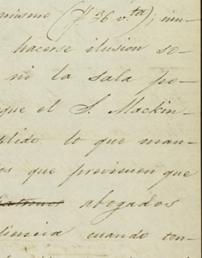 mismo (f 26 v.ta); inu-
hacerse ilusion so-
no la sala po-
que el S. Mackin-
plido lo que man-
os que previenen que
abogados
diencia cuando con-